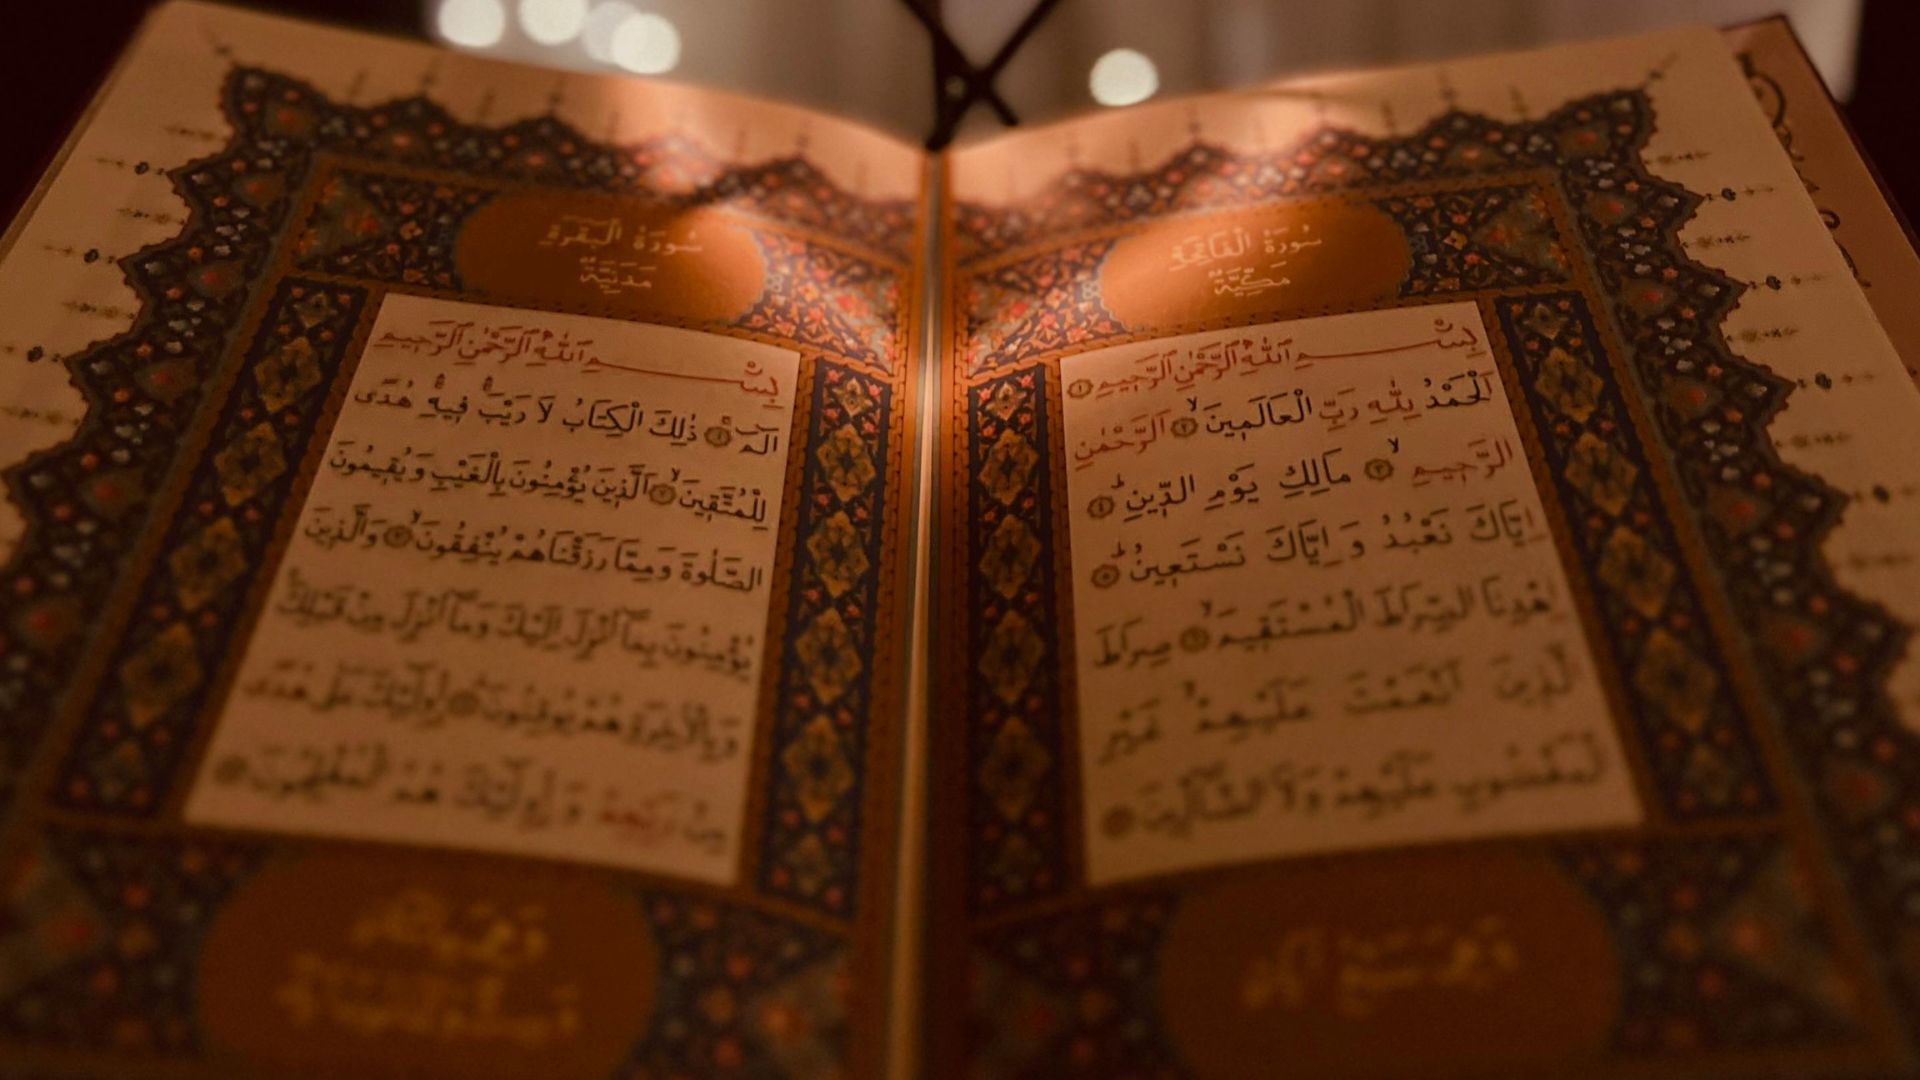 سُورَةُ الْفَاتِحَةِ
مَكِّيَّةٌ
بِسْمِ اللّٰهِ الرَّحْمٰنِ الرَّحِيمِ ﴿١﴾
اَلْحَمْدُ لِلّٰهِ رَبِّ الْعَالَمِينَۙ ﴿٢﴾ اَلرَّحْمٰنِ
الرَّحِيمِۙ ﴿٣﴾ مَالِكِ يَوْمِ الدِّينِۜ ﴿٤﴾
اِيَّاكَ نَعْبُدُ وَاِيَّاكَ نَسْتَعِينُۜ ﴿٥﴾
اِهْدِنَا الصِّرَاطَ الْمُسْتَقِيمَۙ ﴿٦﴾ صِرَاطَ
الَّذِينَ اَنْعَمْتَ عَلَيْهِمْۙ غَيْرِ
الْمَغْضُوبِ عَلَيْهِمْ وَلَا الضَّٓالِّينَ ﴿٧﴾
سُورَةُ الْبَقَرَةِ
مَدَنِيَّةٌ
بِسْمِ اللّٰهِ الرَّحْمٰنِ الرَّحِيمِ
الٓمٓۚ ﴿١﴾ ذٰلِكَ الْكِتَابُ لَا رَيْبَۚۛ فِيهِۚۛ هُدًى
لِلْمُتَّقِينَۙ ﴿٢﴾ اَلَّذِينَ يُؤْمِنُونَ بِالْغَيْبِ وَيُقِيمُونَ
الصَّلٰوةَ وَمِمَّا رَزَقْنَاهُمْ يُنْفِقُونَۙ ﴿٣﴾ وَالَّذِينَ
يُؤْمِنُونَ بِمَٓا اُنْزِلَ اِلَيْكَ وَمَٓا اُنْزِلَ مِنْ قَبْلِكَۚ
وَبِالْاٰخِرَةِ هُمْ يُوقِنُونَۜ ﴿٤﴾ اُو۬لٰٓئِكَ عَلٰى هُدًى
مِنْ رَبِّهِمْ وَاُو۬لٰٓئِكَ هُمُ الْمُفْلِحُونَ ﴿٥﴾